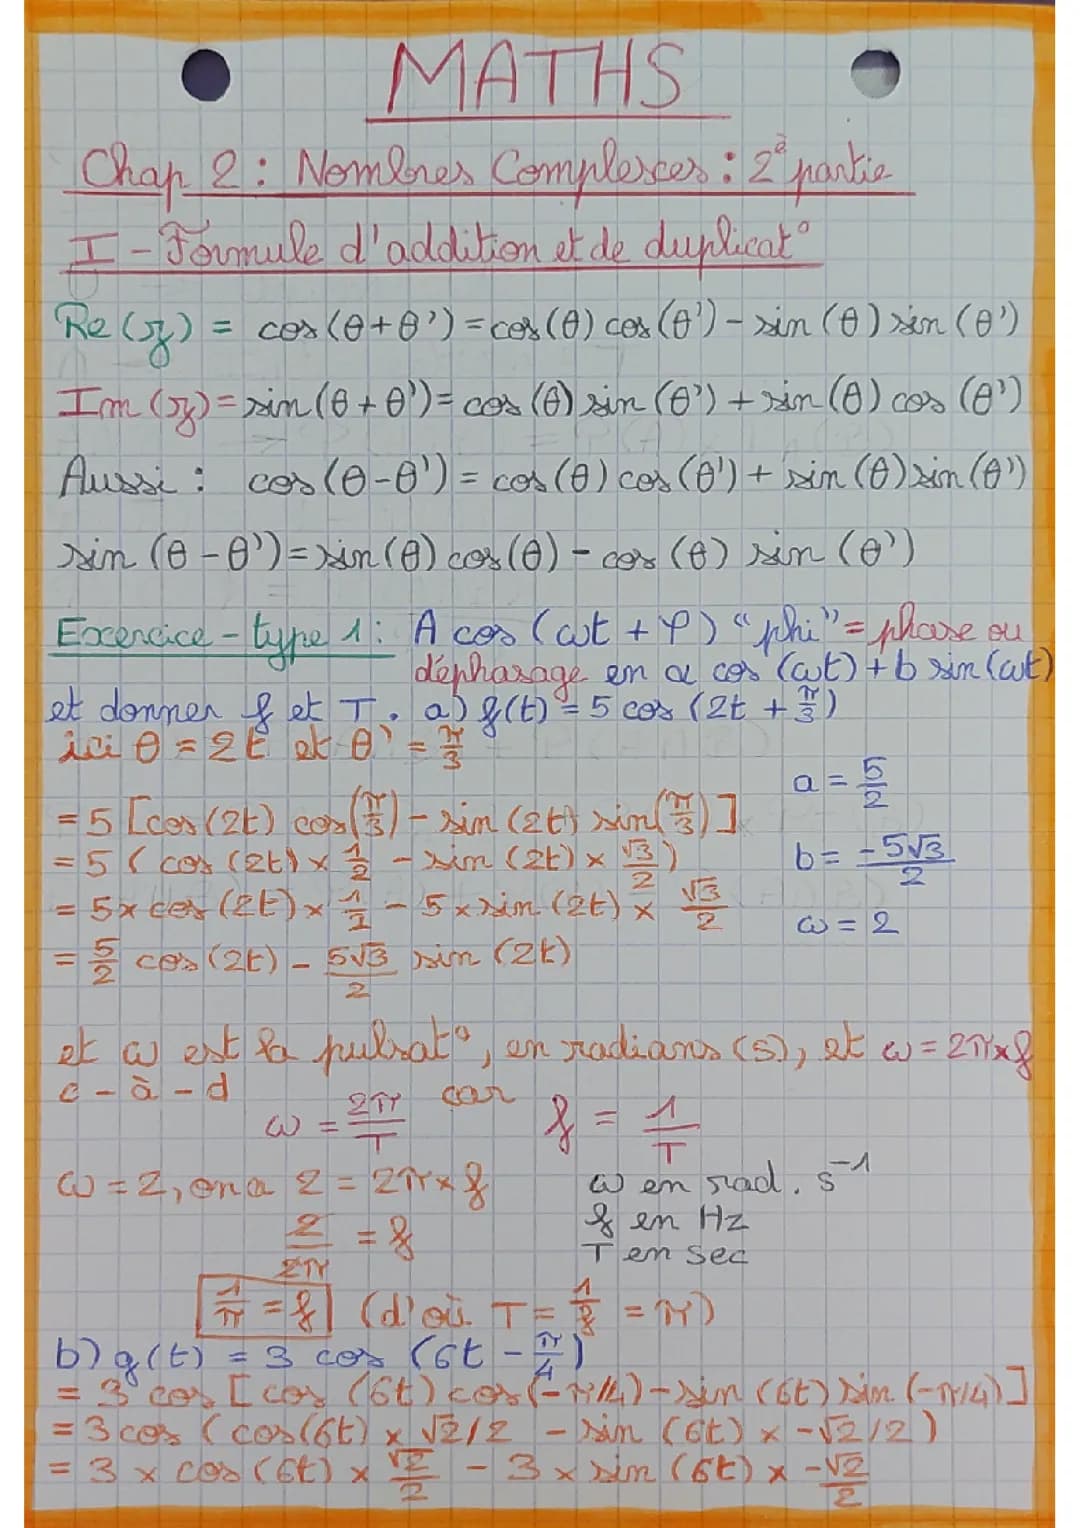 MATHS
Chap 2 : Nombres Complexes : 2è partie
I - Formule d'addition et de duplicat°
Re(z) = cos(θ+θ') = cos(θ) cos(θ') - sin(θ) sin(θ')
Im(z) = sin(θ+θ') = cos(θ) sin(θ') + sin(θ) cos(θ')
Aussi : cos(θ-θ') = cos(θ) cos(θ') + sin(θ) sin(θ')
sin(θ-θ') = sin(θ) cos(θ) - cos(θ) sin(θ')
Exercice - type 1 : A cos(ωt + φ) "phi" = phase ou
déphasage en a cos(ωt) + b sin(ωt)
et donner f et T. a) f(t) = 5 cos(2t + π/3)
ici θ = 2t et θ' = π/3
a = 5/2
= 5 [cos(2t) cos(π/3) - sin(2t) sin(π/3)]
= 5 (cos(2t) × 1/2 - sin(2t) × √3/2)
b = -5√3/2
= 5 × cos(2t) × 1/2 - 5 × sin(2t) × √3/2
ω = 2
= 5/2 cos(2t) - 5√3/2 sin(2t)
et ω est la pulsat°, en radians (s), et ω = 2π×f
c-à-d
ω = 2π/T car f = 1/T
ω = 2, on a 2 = 2π×f
ω en rad.s⁻¹
2/2π = f
f en Hz
T en sec
1/π = f (d'où T = 1/f = π)
b) g(t) = 3 cos(6t - π/4)
= 3 cos [cos(6t) cos(-π/4) - sin(6t) sin(-π/4)]
= 3 cos (cos(6t) × √2/2 - sin(6t) × -√2/2)
= 3 × cos(6t) × √2/2 - 3 × sin(6t) × -√2/2